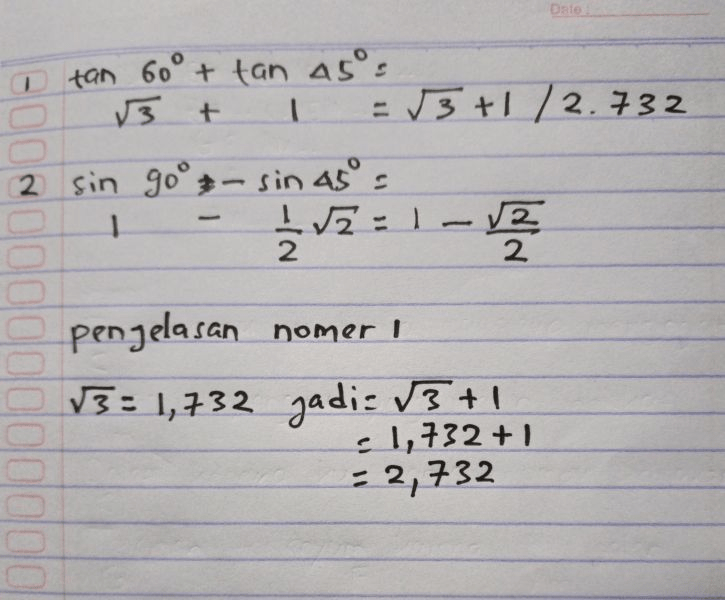 Date :
1 tan 60° + tan 45° =
√3 + 1 = √3 + 1 / 2.732
2 sin 90° - sin 45° =
1 - 1/2 √2 = 1 - √2/2
pengelasan nomer 1
√3 = 1,732 jadi = √3 + 1
= 1,732 + 1
= 2,732